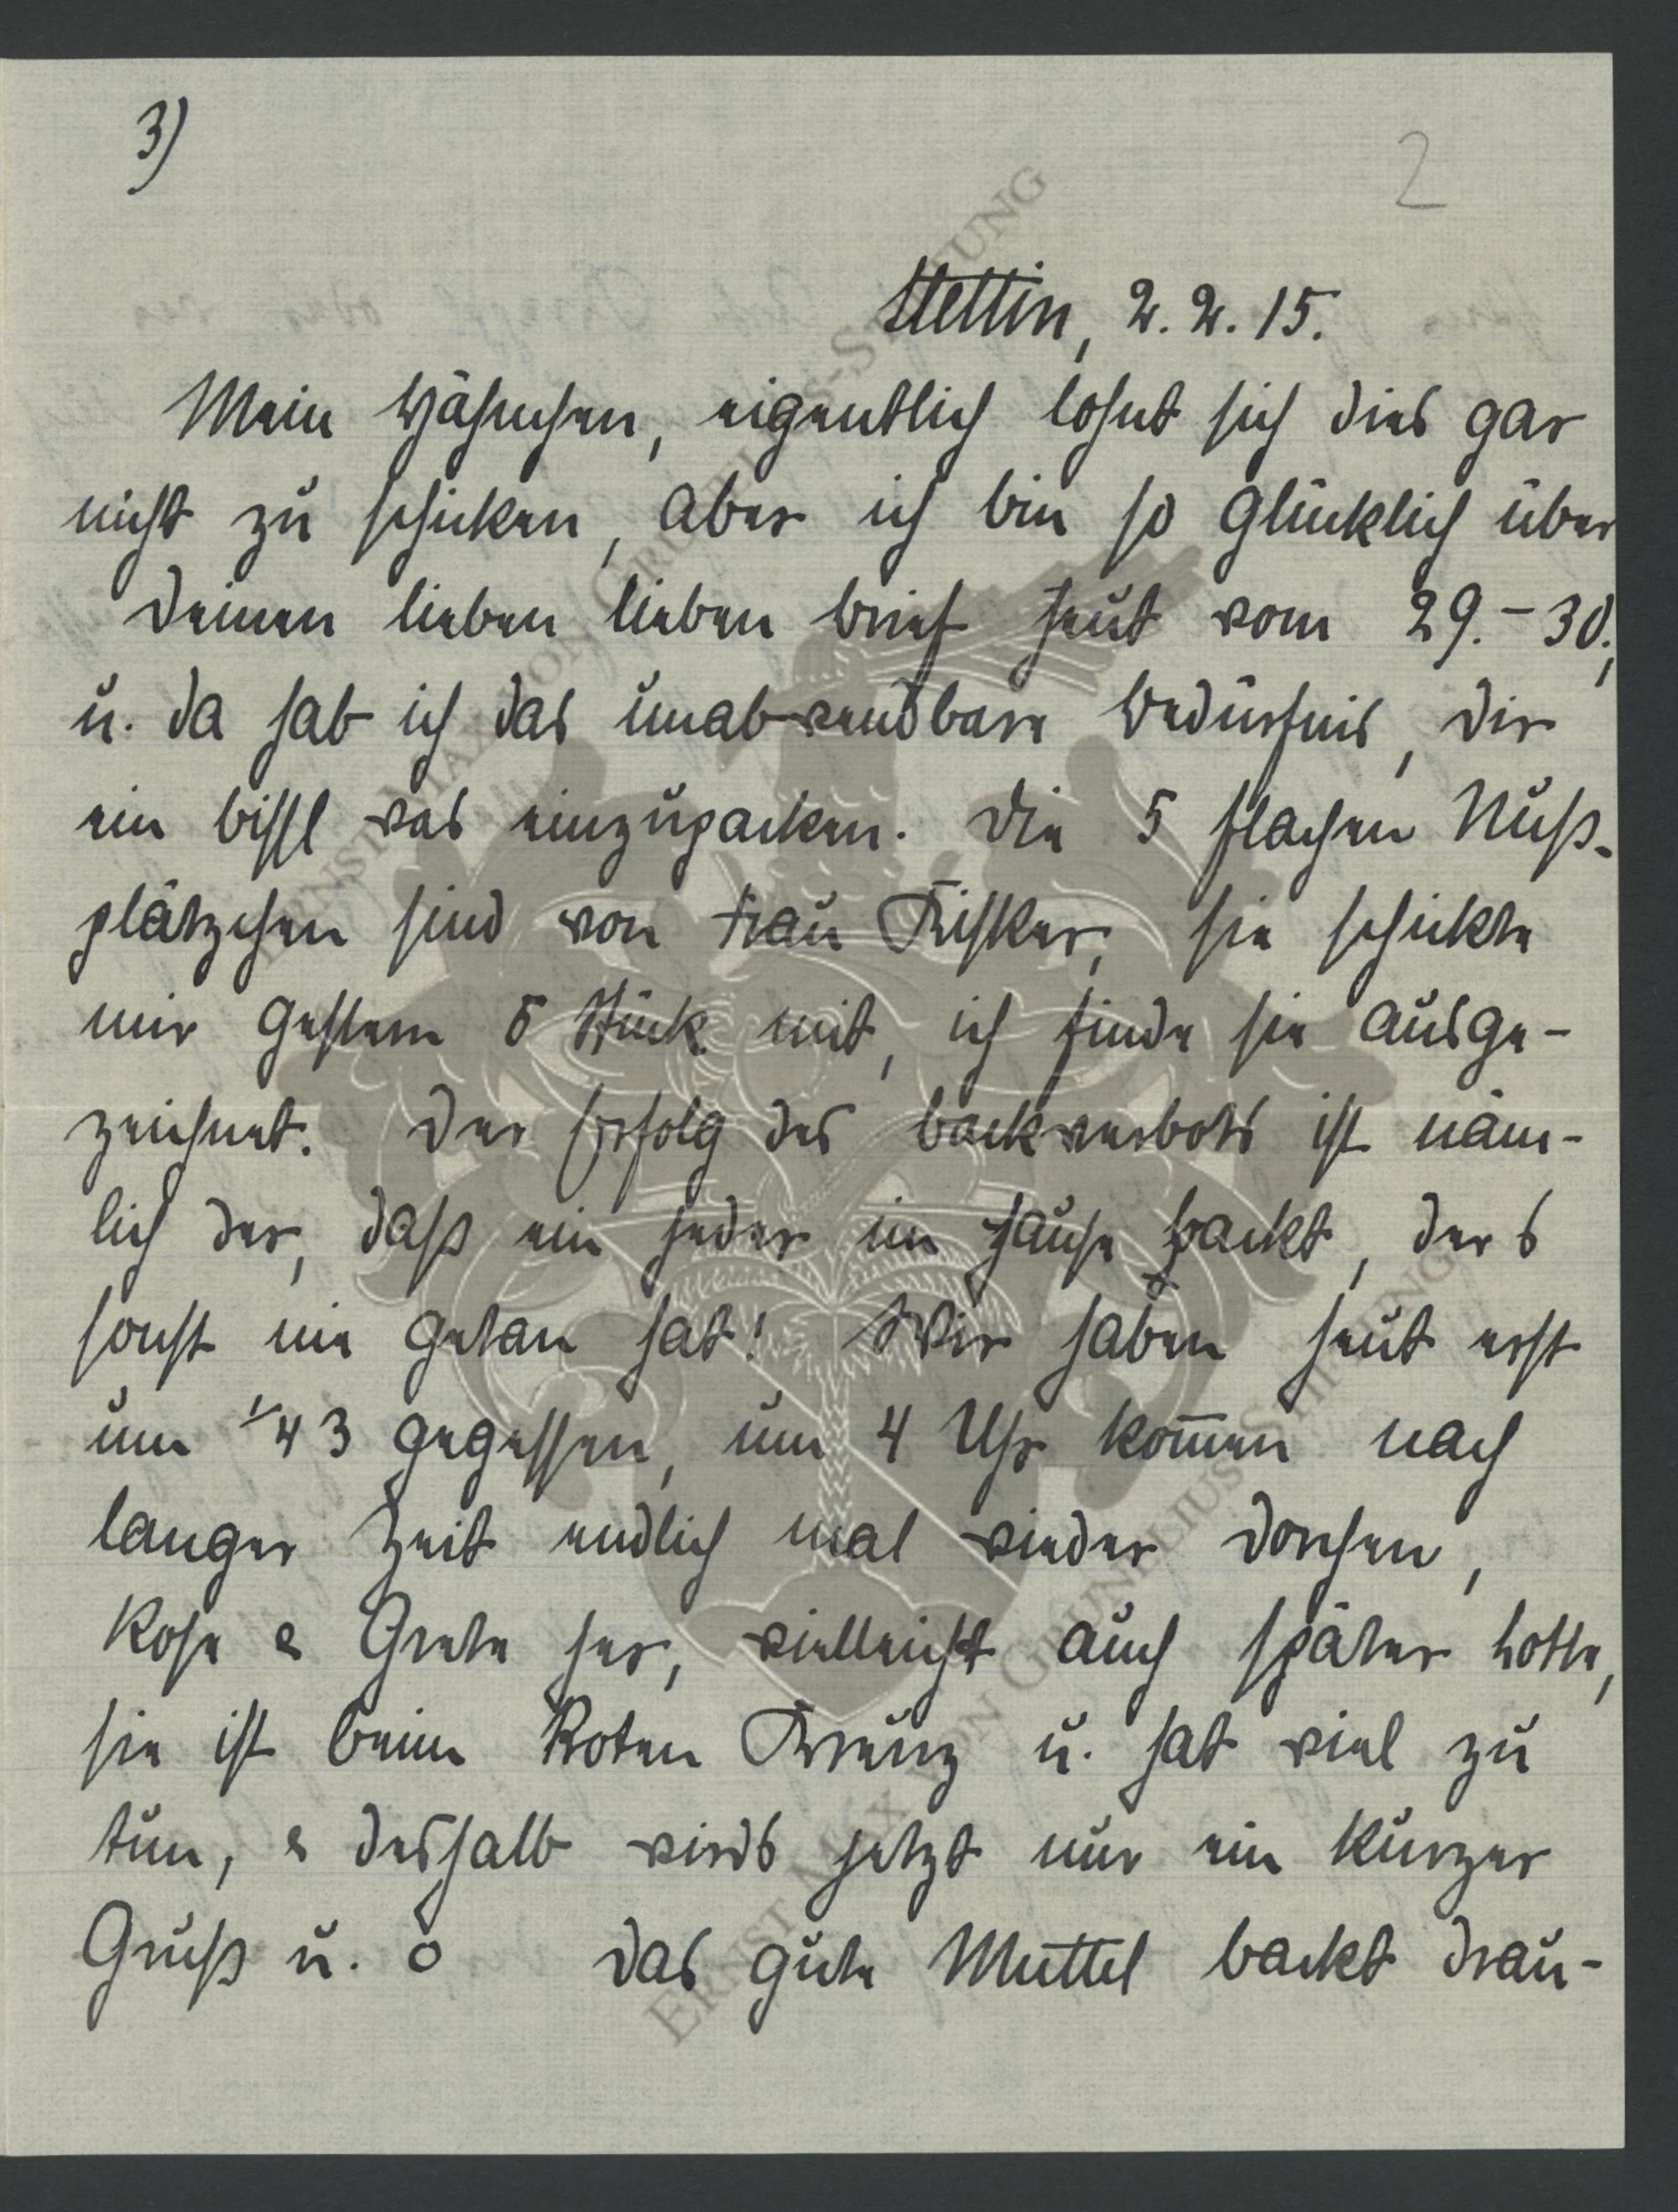 3)
2
Stettin, 2. 2. 15.
Mein Hähnchen, eigentlich lohnt sich dies gar
nicht zu schicken, aber ich bin so glücklich über
Deinen lieben lieben Brief heut vom 29.–30.,
u. da hab ich das unabwendbare Bedürfnis, Dir
ein bissl was einzupacken. Die 5 flachen Nuss-
plätzchen sind von Frau Fischer, sie schickte
mir gestern 5 Stück mit, ich finde sie ausge-
zeichnet. Der Erfolg des Backverbots ist näm-
lich der, dass ein jeder im Hause backt, der's
sonst nie getan hat! Wir haben heut erst
um 1/4 3 gegessen, um 4 Uhr kom̄en nach
langer Zeit endlich mal wieder Dorchen,
Rose & Grete her, vielleicht auch später Lotte,
sie ist beim Roten Kreuz u. hat viel zu
tun, & deshalb wirds jetzt nur ein kurzer
Gruss u. o Das gute Muttel backt drau-
ERNST MAX VON GRUNELIUS-STIFTUNG
ERNST MAX VON GRUNELIUS-STIFTUNG